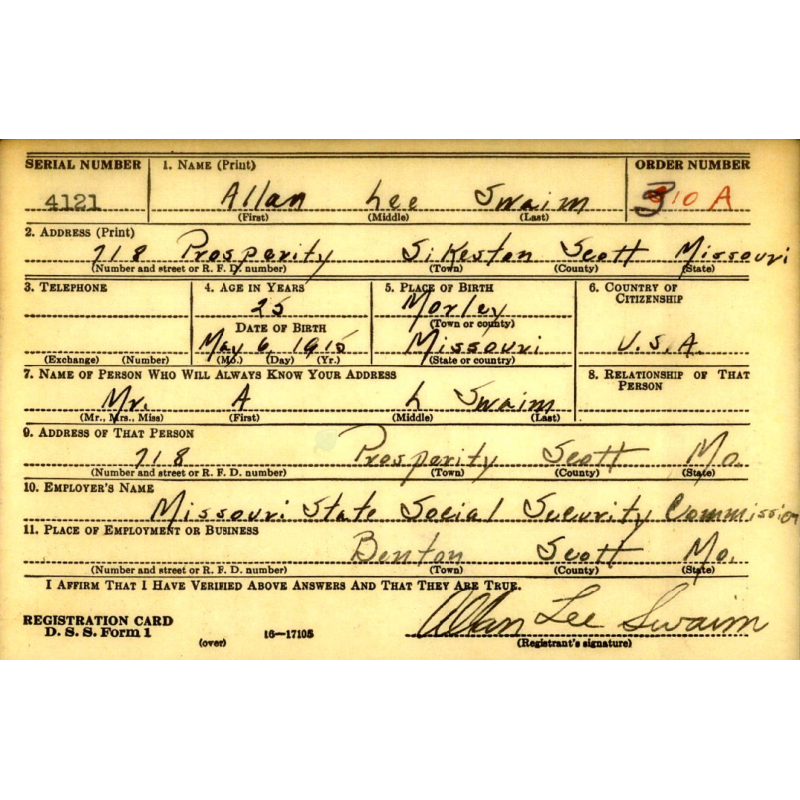 SERIAL NUMBER 1. NAME (Print) ORDER NUMBER
4121 Allan Lee Swaim 10 A
(First) (Middle) (Last)
2. ADDRESS (Print)
718 Prosperity Sikeston Scott Missouri
(Number and street or R. F. D. number) (Town) (County) (State)
3. TELEPHONE 4. AGE IN YEARS 5. PLACE OF BIRTH 6. COUNTRY OF CITIZENSHIP
25 Morley
DATE OF BIRTH (Town or county)
May 6, 1915 Missouri U.S.A.
(Exchange) (Number) (Mo.) (Day) (Yr.) (State or country)
7. NAME OF PERSON WHO WILL ALWAYS KNOW YOUR ADDRESS 8. RELATIONSHIP OF THAT PERSON
Mr. A L Swaim
(Mr., Mrs., Miss) (First) (Middle) (Last)
9. ADDRESS OF THAT PERSON
718 Prosperity Scott Mo.
(Number and street or R. F. D. number) (Town) (County) (State)
10. EMPLOYER'S NAME
Missouri State Social Security Commission
11. PLACE OF EMPLOYMENT OR BUSINESS
Benton Scott Mo.
(Number and street or R. F. D. number) (Town) (County) (State)
I AFFIRM THAT I HAVE VERIFIED ABOVE ANSWERS AND THAT THEY ARE TRUE.
REGISTRATION CARD Allan Lee Swaim
D. S. S. Form 1 (over) 16—17105 (Registrant's signature)